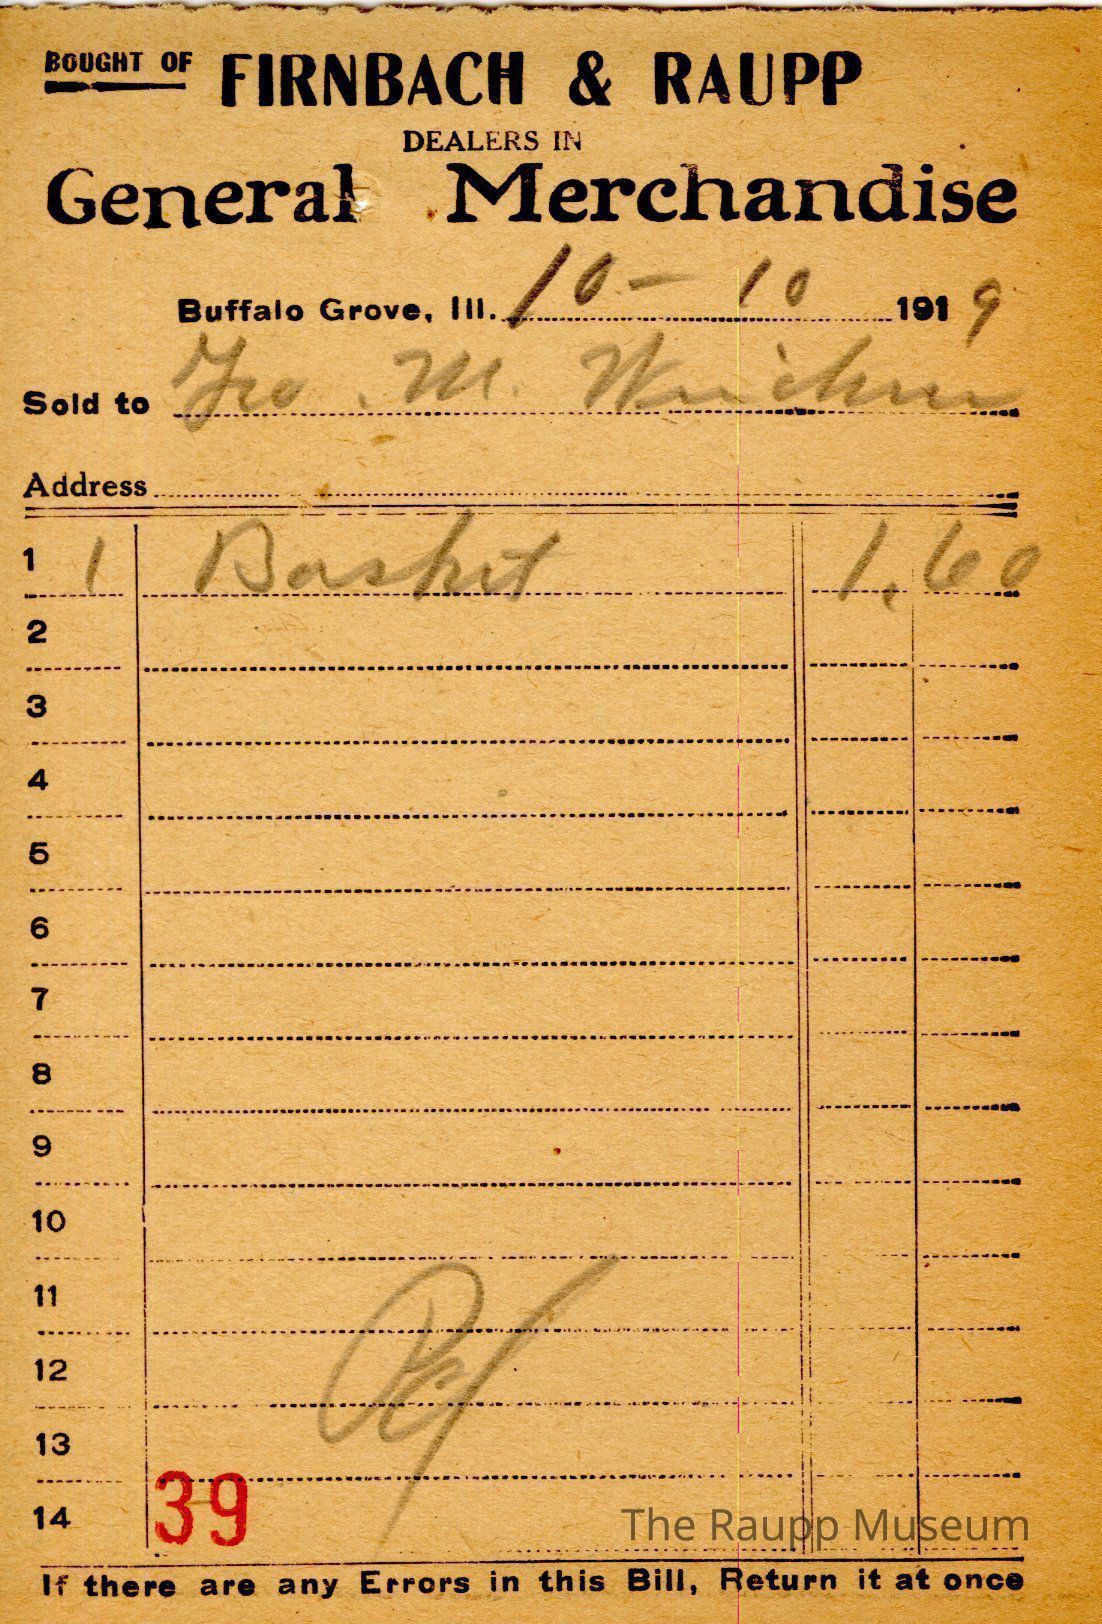 BOUGHT OF FIRNBACH & RAUPP
DEALERS IN
General Merchandise
Buffalo Grove, Ill. 10 - 10 1919
Sold to Geo. M.
Address
1 1 Basket 1,60
2
3
4
5
6
7
8
9
10
11
12
13
14 39
The Raupp Museum
If there are any Errors in this Bill, Return it at once